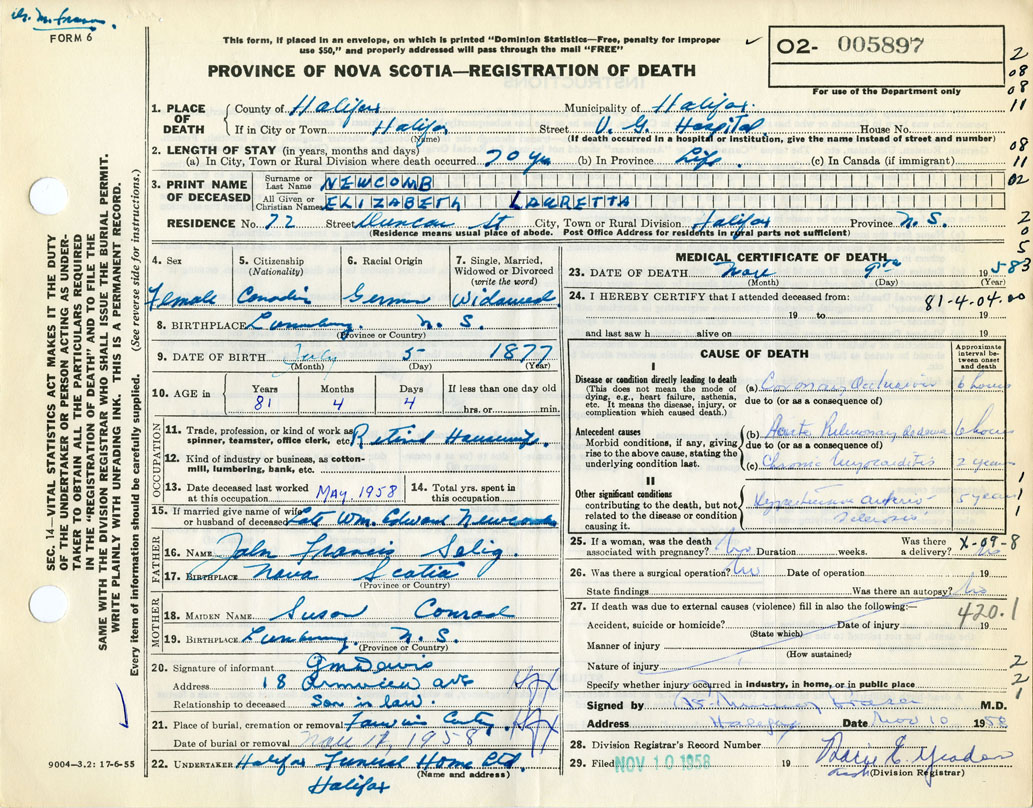 FORM 6
This form, if placed in an envelope, on which is printed "Dominion Statistics—Free, penalty for improper
use $50," and properly addressed will pass through the mail "FREE"
02- 005897
For use of the Department only
PROVINCE OF NOVA SCOTIA—REGISTRATION OF DEATH
1. PLACE OF DEATH County of Halifax Municipality of Halifax
If in City or Town Halifax Street V. G. Hospital House No.
(Name) (If death occurred in a hospital or institution, give the name instead of street and number)
2. LENGTH OF STAY (in years, months and days)
(a) In City, Town or Rural Division where death occurred 70 yrs (b) In Province Life (c) In Canada (if immigrant)
3. PRINT NAME OF DECEASED Surname or Last Name NEWCOMB
All Given or Christian Names ELIZABETH LAURETTA
RESIDENCE No. 72 Street Duncan St City, Town or Rural Division Halifax Province N.S.
(Residence means usual place of abode. Post Office Address for residents in rural parts not sufficient)
4. Sex Female
5. Citizenship (Nationality) Canadian
6. Racial Origin German
7. Single, Married, Widowed or Divorced (write the word) Widowed
8. BIRTHPLACE Lunenburg N.S.
(Province or Country)
9. DATE OF BIRTH July 5 1877
(Month) (Day) (Year)
10. AGE in Years 81 Months 4 Days 4 If less than one day old hrs. or min.
OCCUPATION
11. Trade, profession, or kind of work as spinner, teamster, office clerk, etc. Retired Housewife
12. Kind of industry or business, as cotton-mill, lumbering, bank, etc.
13. Date deceased last worked at this occupation MAY 1958 14. Total yrs. spent in this occupation
15. If married give name of wife or husband of deceased Late Wm. Edward Newcomb
FATHER
16. NAME John Francis Selig
17. BIRTHPLACE Nova Scotia
(Province or Country)
MOTHER
18. MAIDEN NAME Susan Conrad
19. BIRTHPLACE Lunenburg N.S.
(Province or Country)
20. Signature of informant G M Dewis
Address 18 Armview Ave Hfx
Relationship to deceased Son in law
21. Place of burial, cremation or removal Fairview Cemetery Hfx
Date of burial or removal Nov 11, 1958
22. UNDERTAKER Halifax Funeral Home Ltd.
(Name and address)
Halifax
MEDICAL CERTIFICATE OF DEATH
23. DATE OF DEATH Nov 9th 1958
(Month) (Day)
24. I HEREBY CERTIFY that I attended deceased from: 81-4-04.00
19 to 19
and last saw h alive on 19
CAUSE OF DEATH
Approximate interval between onset and death
I
Disease or condition directly leading to death (a) Coronary Occlusion 6 hours
(This does not mean the mode of dying, e.g., heart failure, asthenia, etc. It means the disease, injury, or complication which caused death.)
due to (or as a consequence of)
Antecedent causes (b) Acute Pulmonary oedema 6 hours
Morbid conditions, if any, giving rise to the above cause, stating the underlying condition last.
due to (or as a consequence of)
(c) Chronic Myocarditis 2 years
II
Other significant conditions contributing to the death, but not related to the disease or condition causing it.
Hypertension arterio- sclerosis 5 years
25. If a woman, was the death associated with pregnancy? No Duration weeks. Was there a delivery? No
X-09-8
26. Was there a surgical operation? No Date of operation 19
State findings Was there an autopsy? No
27. If death was due to external causes (violence) fill in also the following:— 420.1
Accident, suicide or homicide? Date of injury 19
(State which)
Manner of injury
(How sustained)
Nature of injury
Specify whether injury occurred in industry, in home, or in public place
Signed by Fraser M.D.
Address Halifax Date Nov 10 1958
28. Division Registrar's Record Number
29. Filed NOV 10 1958 19
(Division Registrar)
SEC. 14—VITAL STATISTICS ACT MAKES IT THE DUTY
OF THE UNDERTAKER OR PERSON ACTING AS UNDER-
TAKER TO OBTAIN ALL THE PARTICULARS REQUIRED
IN THE "REGISTRATION OF DEATH" AND TO FILE THE
SAME WITH THE DIVISION REGISTRAR WHO SHALL ISSUE THE BURIAL PERMIT.
WRITE PLAINLY WITH UNFADING INK. THIS IS A PERMANENT RECORD.
Every item of information should be carefully supplied. (See reverse side for instructions.)
9004—3.2: 17-6-55
2
08
08
11
08
11
02
2
0
5
3
1
1
1
2
2
1